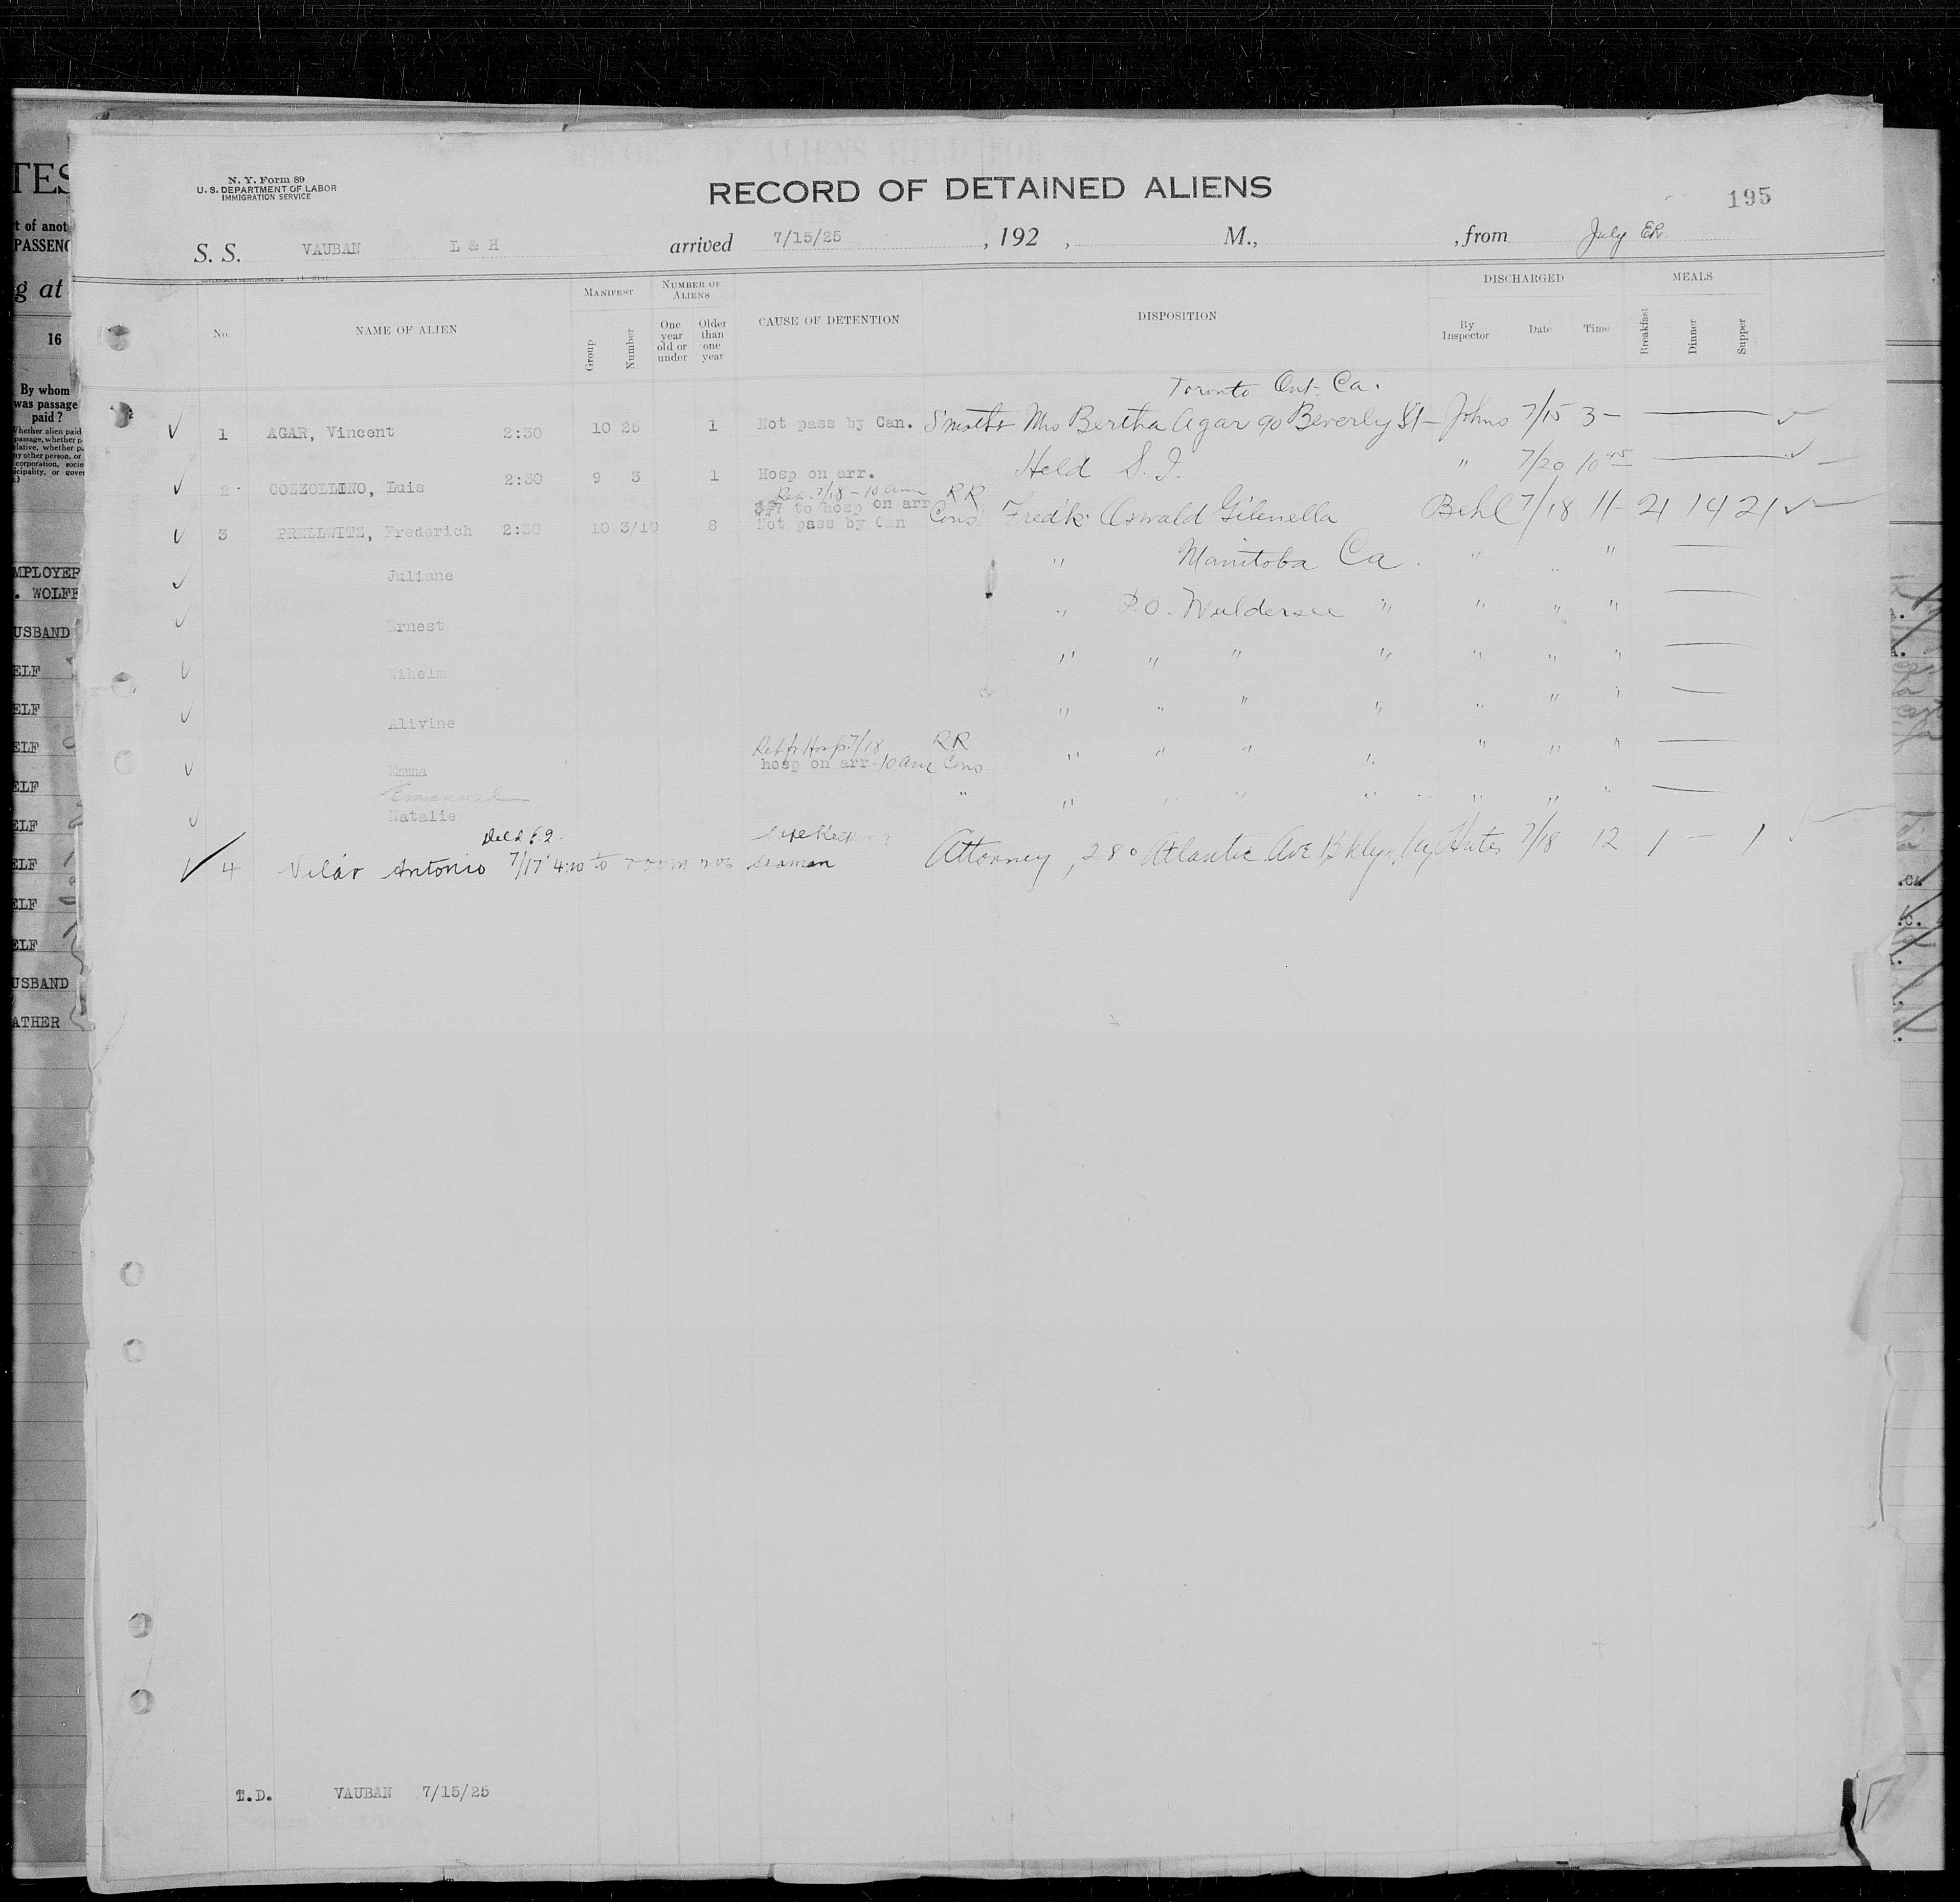 N. Y. Form 89
U. S. DEPARTMENT OF LABOR
IMMIGRATION SERVICE
RECORD OF DETAINED ALIENS
195
S. S. VAUBAN L & H arrived 7/15/25, 192 , M., , from July
No. NAME OF ALIEN MANIFEST Group Number NUMBER OF ALIENS One year old or under Older than one year CAUSE OF DETENTION DISPOSITION DISCHARGED By Inspector Date Time MEALS Breakfast Dinner Supper
Toronto Ont. Ca.
1 AGAR, Vincent 2:30 10 25 1 Not pass by Can. Mrs Bertha Agar 90 Beverly St - Johns 7/15 3 —
2 COZZOLLINO, Luis 2:30 9 3 1 Hosp on arr. Held S. I. " 7/20 10 45
7/18 - 10 am RR
#7 to hosp on arr
3 PRELLWITZ, Frederich 2:30 10 3/10 8 Not pass by Can Cons. Fredk. Oswald Gilenella Behl 7/18 11 - 21 14 21
Juliane " Manitoba Ca. " " "
Ernest " P.O. Waldersee " " " "
Wihelm " " " " " " "
Alivine " " " " " " "
Ret fr Hosp 7/18 RR
Emma hosp on arr - 10 am Cons " " " " " " "
Emanuel
Natalie " " " " " " " "
4 Vilár Antonio 7/17 4:20 to room 206 seaman Attorney, 280 Atlantic Ave Bklyn, Ny 7/18 12 1 — 1
T.D. VAUBAN 7/15/25
TES
rt of anot
PASSENG
g at
16
By whom
was passage
paid?
MPLOYER
. WOLFF
USBAND
ELF
ELF
ELF
ELF
ELF
ELF
ELF
ELF
USBAND
ATHER